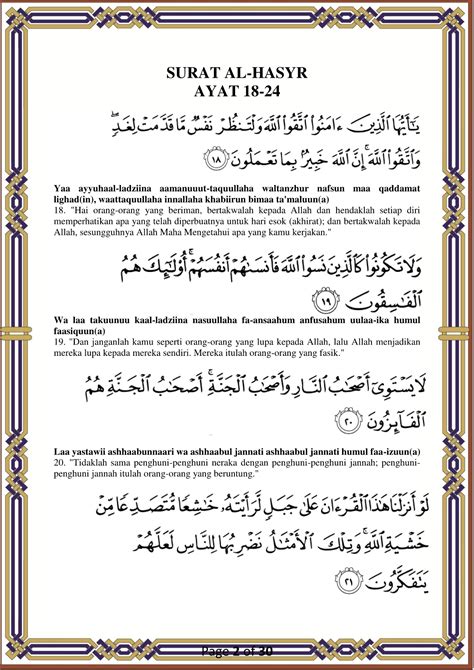 SURAT AL-HASYR
AYAT 18-24
يَـٰٓأَيُّهَا ٱلَّذِينَ ءَامَنُوا۟ ٱتَّقُوا۟ ٱللَّهَ وَلْتَنظُرْ نَفْسٌ مَّا قَدَّمَتْ لِغَدٍ ۖ
وَٱتَّقُوا۟ ٱللَّهَ ۚ إِنَّ ٱللَّهَ خَبِيرٌۢ بِمَا تَعْمَلُونَ ١٨
Yaa ayyuhaal-ladziina aamanuuut-taquullaha waltanzhur nafsun maa qaddamat
lighad(in), waattaquullaha innallaha khabiirun bimaa ta'maluun(a)
18. "Hai orang-orang yang beriman, bertakwalah kepada Allah dan hendaklah setiap diri
memperhatikan apa yang telah diperbuatnya untuk hari esok (akhirat); dan bertakwalah kepada
Allah, sesungguhnya Allah Maha Mengetahui apa yang kamu kerjakan."
وَلَا تَكُونُوا۟ كَٱلَّذِينَ نَسُوا۟ ٱللَّهَ فَأَنسَىٰهُمْ أَنفُسَهُمْ ۚ أُو۟لَـٰٓئِكَ هُمُ
ٱلْفَـٰسِقُونَ ١٩
Wa laa takuunuu kaal-ladziina nasuullaha fa-ansaahum anfusahum uulaa-ika humul
faasiquun(a)
19. "Dan janganlah kamu seperti orang-orang yang lupa kepada Allah, lalu Allah menjadikan
mereka lupa kepada mereka sendiri. Mereka itulah orang-orang yang fasik."
لَا يَسْتَوِىٓ أَصْحَـٰبُ ٱلنَّارِ وَأَصْحَـٰبُ ٱلْجَنَّةِ ۚ أَصْحَـٰبُ ٱلْجَنَّةِ هُمُ
ٱلْفَآئِزُونَ ٢٠
Laa yastawii ashhaabunnaari wa ashhaabul jannati ashhaabul jannati humul faa-izuun(a)
20. "Tidaklah sama penghuni-penghuni neraka dengan penghuni-penghuni jannah; penghuni-
penghuni jannah itulah orang-orang yang beruntung."
لَوْ أَنزَلْنَا هَـٰذَا ٱلْقُرْءَانَ عَلَىٰ جَبَلٍ لَّرَأَيْتَهُۥ خَـٰشِعًا مُّتَصَدِّعًا مِّنْ
خَشْيَةِ ٱللَّهِ ۚ وَتِلْكَ ٱلْأَمْثَـٰلُ نَضْرِبُهَا لِلنَّاسِ لَعَلَّهُمْ
يَتَفَكَّرُونَ ٢١
Page 2 of 30